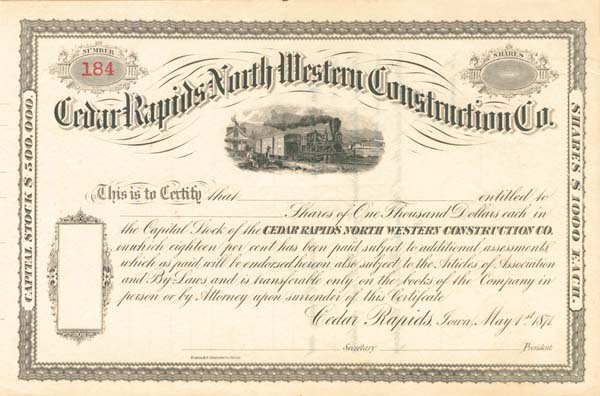 NUMBER
184
SHARES
Cedar Rapids North Western Construction Co.
CAPITAL STOCK $ 500,000.
SHARES $ 1000 EACH.
This is to Certify that entitled to
Shares of One Thousand Dollars each in
the Capital Stock of the CEDAR RAPIDS NORTH WESTERN CONSTRUCTION CO.
on which eighteen per cent has been paid subject to additional assessments
which as paid will be endorsed hereon also subject to the Articles of Association
and By-Laws and is transferable only on the books of the Company in
person or by Attorney upon surrender of this Certifcate
Cedar Rapids, Iowa, May 1st 1871
Secretary President